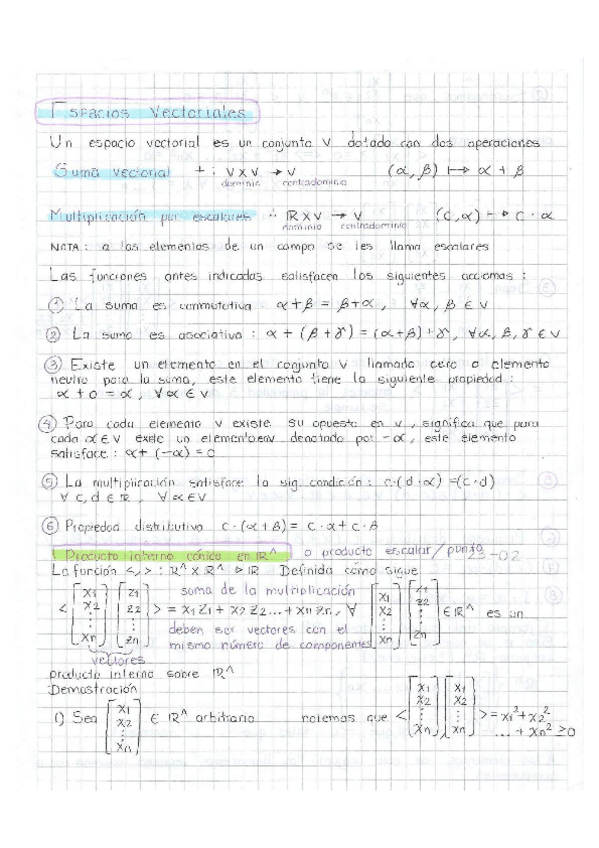 Espacios Vectoriales
Un espacio vectorial es un conjunto V dotado con dos operaciones
Suma vectorial + : V x V → V (α, β) ↦ α + β
dominio contradominio
Multiplicación por escalares ∴ ℝ x V → V (c, α) → c · α
dominio contradominio
NOTA : a los elementos de un campo se les llama escalares
Las funciones antes indicadas satisfacen los siguientes axiomas :
① La suma es conmutativa : α + β = β + α , ∀α, β ∈ V
② La suma es asociativa : α + (β + γ) = (α + β) + γ, ∀α, β, γ ∈ V
③ Existe un elemento en el conjunto V llamado cero o elemento
neutro para la suma, este elemento tiene la siguiente propiedad :
α + 0 = α , ∀ α ∈ V
④ Para cada elemento V existe su opuesto en V , significa que para
cada α ∈ V existe un elemento en V denotado por -α , este elemento
satisface : α + (-α) = 0
⑤ La multiplicación satisface la sig. condición : c·(d·α) = (c·d)
∀ c, d ∈ ℝ , ∀ α ∈ V
⑥ Propiedad distributiva c · (α + β) = c · α + c · β
Producto interno cónico en ℝ^ o producto escalar / punto
23-02
La función <,> : ℝ^ x ℝ^ → ℝ Definida cómo sigue
< [x1 x2 ⋮ xn] [z1 z2 ⋮ zn] > = x1z1 + x2z2 ... + xnzn, ∀ [x1 x2 ⋮ xn] [z1 z2 ⋮ zn] ∈ ℝ^ es un
suma de la multiplicación
deben ser vectores con el
mismo número de componentes
vectores
producto interno sobre ℝ^
Demostración
1) Sea [x1 x2 ⋮ xn] ∈ ℝ^ arbitrario notemos que < [x1 x2 ⋮ xn] [x1 x2 ⋮ xn] > = x1² + x2²
... + xn² ≥ 0